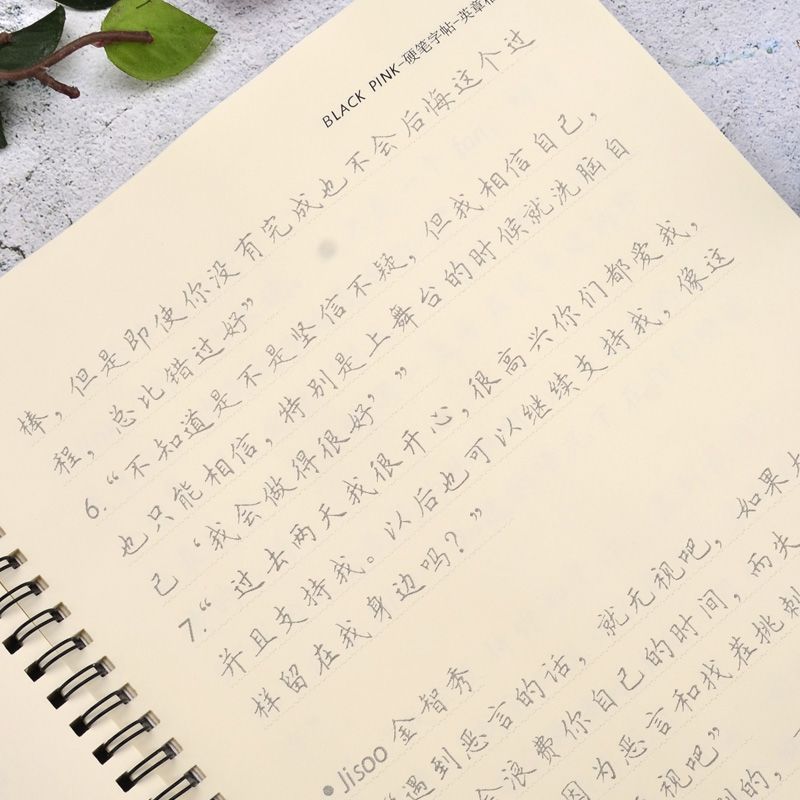 BLACK PINK-硬笔字帖-英章
棒，但是即使你没有完成也不会后悔这个过
程，总比错过好”
6.“不知道是不是坚信不疑，但我相信自己，
也只能相信，特别是上舞台的时候就洗脑自
己‘我会做得很好’”
7.“过去两天我很开心，很高兴你们都爱我，
并且支持我。以后也可以继续支持我，像这
样留在我身边吗？”
Jisoo 金智秀
“遇到恶言的话，就无视吧，如果
会浪费你自己的时间，而失
因为恶言和找茬挑刺
无视吧”